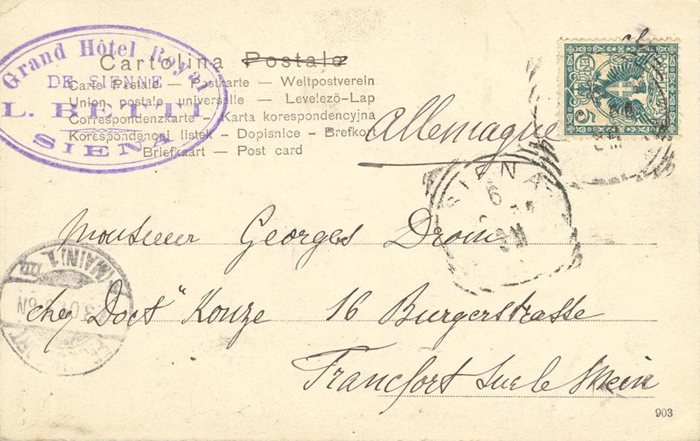 Grand Hôtel Royal
DE SIENNE
SIENA
Cartolina Postale
Carte Postale — Postkarte — Weltpostverein
Union postale universelle — Levelező-Lap
Correspondenzkarte - Karta korespondencyjna
Korespondencni listek - Dopisnice - Brefkort
Briefkaart — Post card
Allemagne
5
SIENA
6
Monsieur Georges
chez Doct" Konze 16 Burgerstrasse
Francfort sur le Mein
903